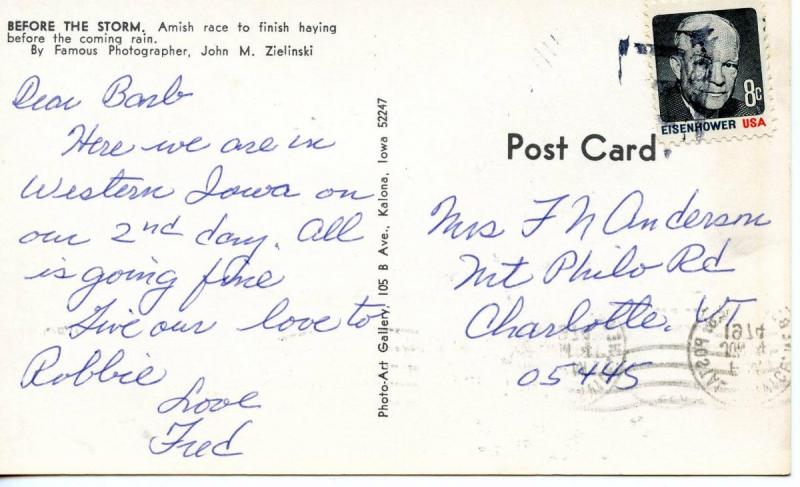 BEFORE THE STORM. Amish race to finish haying
before the coming rain.
By Famous Photographer, John M. Zielinski
Dear Barb
Here we are in
Western Iowa on
our 2nd day. All
is going fine
Give our love to
Robbie
Love
Fred
Photo-Art Gallery, 105 B Ave., Kalona, Iowa 52247
8c
EISENHOWER USA
Post Card
Mrs F N Anderson
Mt Philo Rd
Charlotte, VT
05445
1974